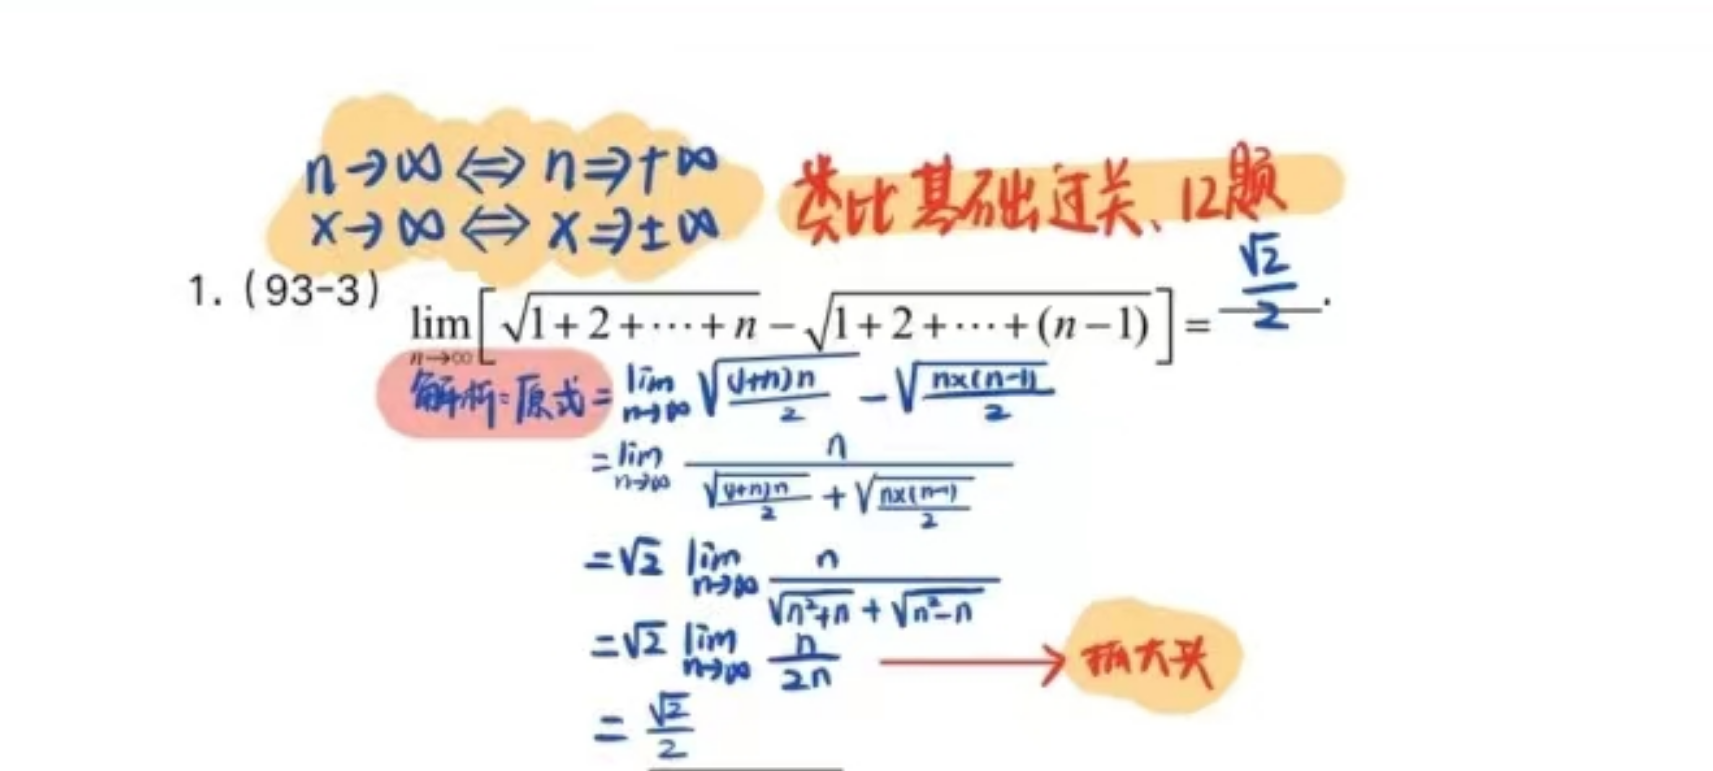 n→∞ ⇔ n⇒+∞
x→∞ ⇔ x⇒±∞
类比基础过关、12题
1. (93-3) lim_{n→∞}[√(1+2+⋯+n) − √(1+2+⋯+(n−1))] = √2/2.
解析:原式= lim_{n→∞} √((1+n)n/2) − √(n×(n-1)/2)
= lim_{n→∞} n/(√((1+n)n/2) + √(n×(n-1)/2))
= √2 lim_{n→∞} n/(√(n²+n) + √(n²-n))
= √2 lim_{n→∞} n/2n → 抓大头
= √2/2